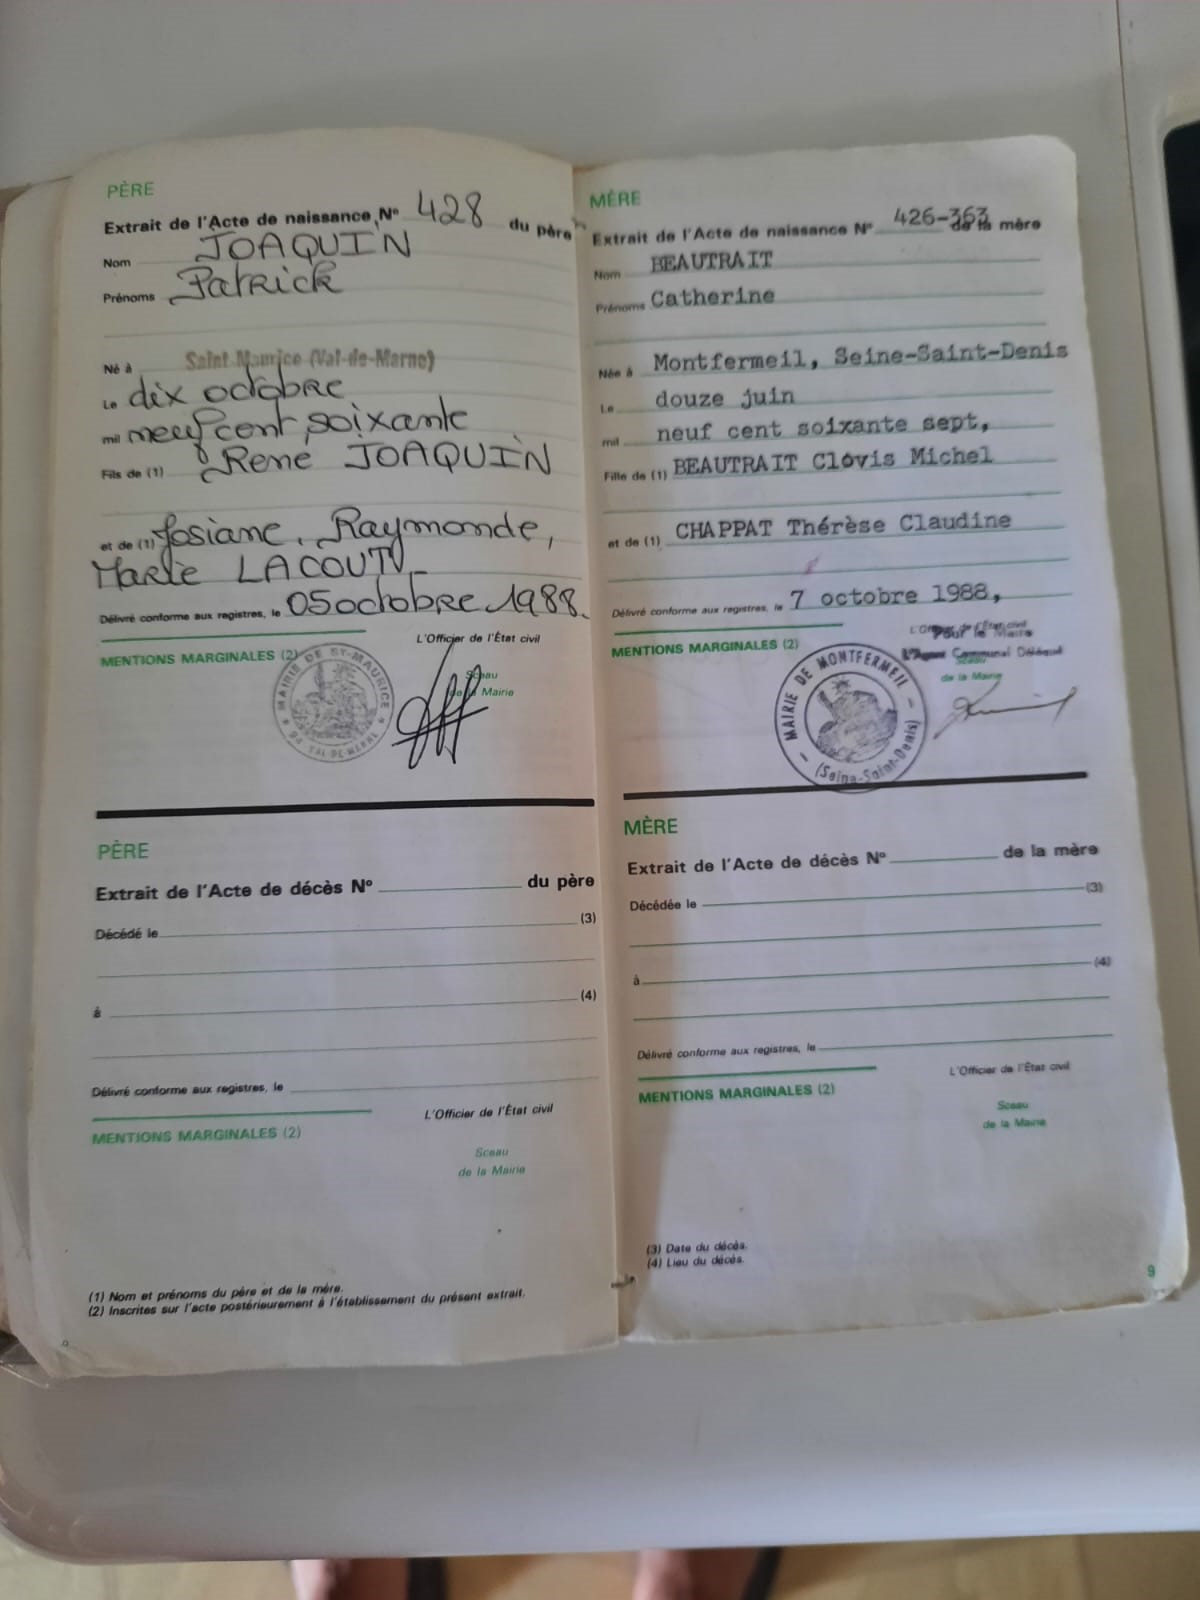 PÈRE
Extrait de l'Acte de naissance N° 428 du père
Nom JOAQUIN
Prénoms Patrick
Né à Saint-Maurice (Val-de-Marne)
Le dix octobre
mil neuf cent soixante
Fils de (1) René JOAQUIN
et de (1) Josiane, Raymonde,
Marie LACOUTY
Délivré conforme aux registres, le 05 octobre 1988.
L'Officier de l'État civil
MENTIONS MARGINALES (2)
Sceau
de la Mairie
MAIRIE DE ST-MAURICE
94 VAL-DE-MARNE
PÈRE
Extrait de l'Acte de décès N° du père
Décédé le (3)
à (4)
Délivré conforme aux registres, le
L'Officier de l'État civil
MENTIONS MARGINALES (2)
Sceau
de la Mairie
(1) Nom et prénoms du père et de la mère.
(2) Inscrites sur l'acte postérieurement à l'établissement du présent extrait.
MÈRE
Extrait de l'Acte de naissance N° 426-363 de la mère
Nom BEAUTRAIT
Prénoms Catherine
Née à Montfermeil, Seine-Saint-Denis
Le douze juin
mil neuf cent soixante sept,
Fille de (1) BEAUTRAIT Clóvis Michel
et de (1) CHAPPAT Thérèse Claudine
Délivré conforme aux registres, le 7 octobre 1988,
L'Officier de l'État civil
Pour le Maire
MENTIONS MARGINALES (2)
L'Agent Communal Délégué
Sceau
de la Mairie
MAIRIE DE MONTFERMEIL
(Seine-Saint-Denis)
MÈRE
Extrait de l'Acte de décès N° de la mère
Décédée le (3)
à (4)
Délivré conforme aux registres, le
L'Officier de l'État civil
MENTIONS MARGINALES (2)
Sceau
de la Mairie
(3) Date du décès.
(4) Lieu du décès.
9